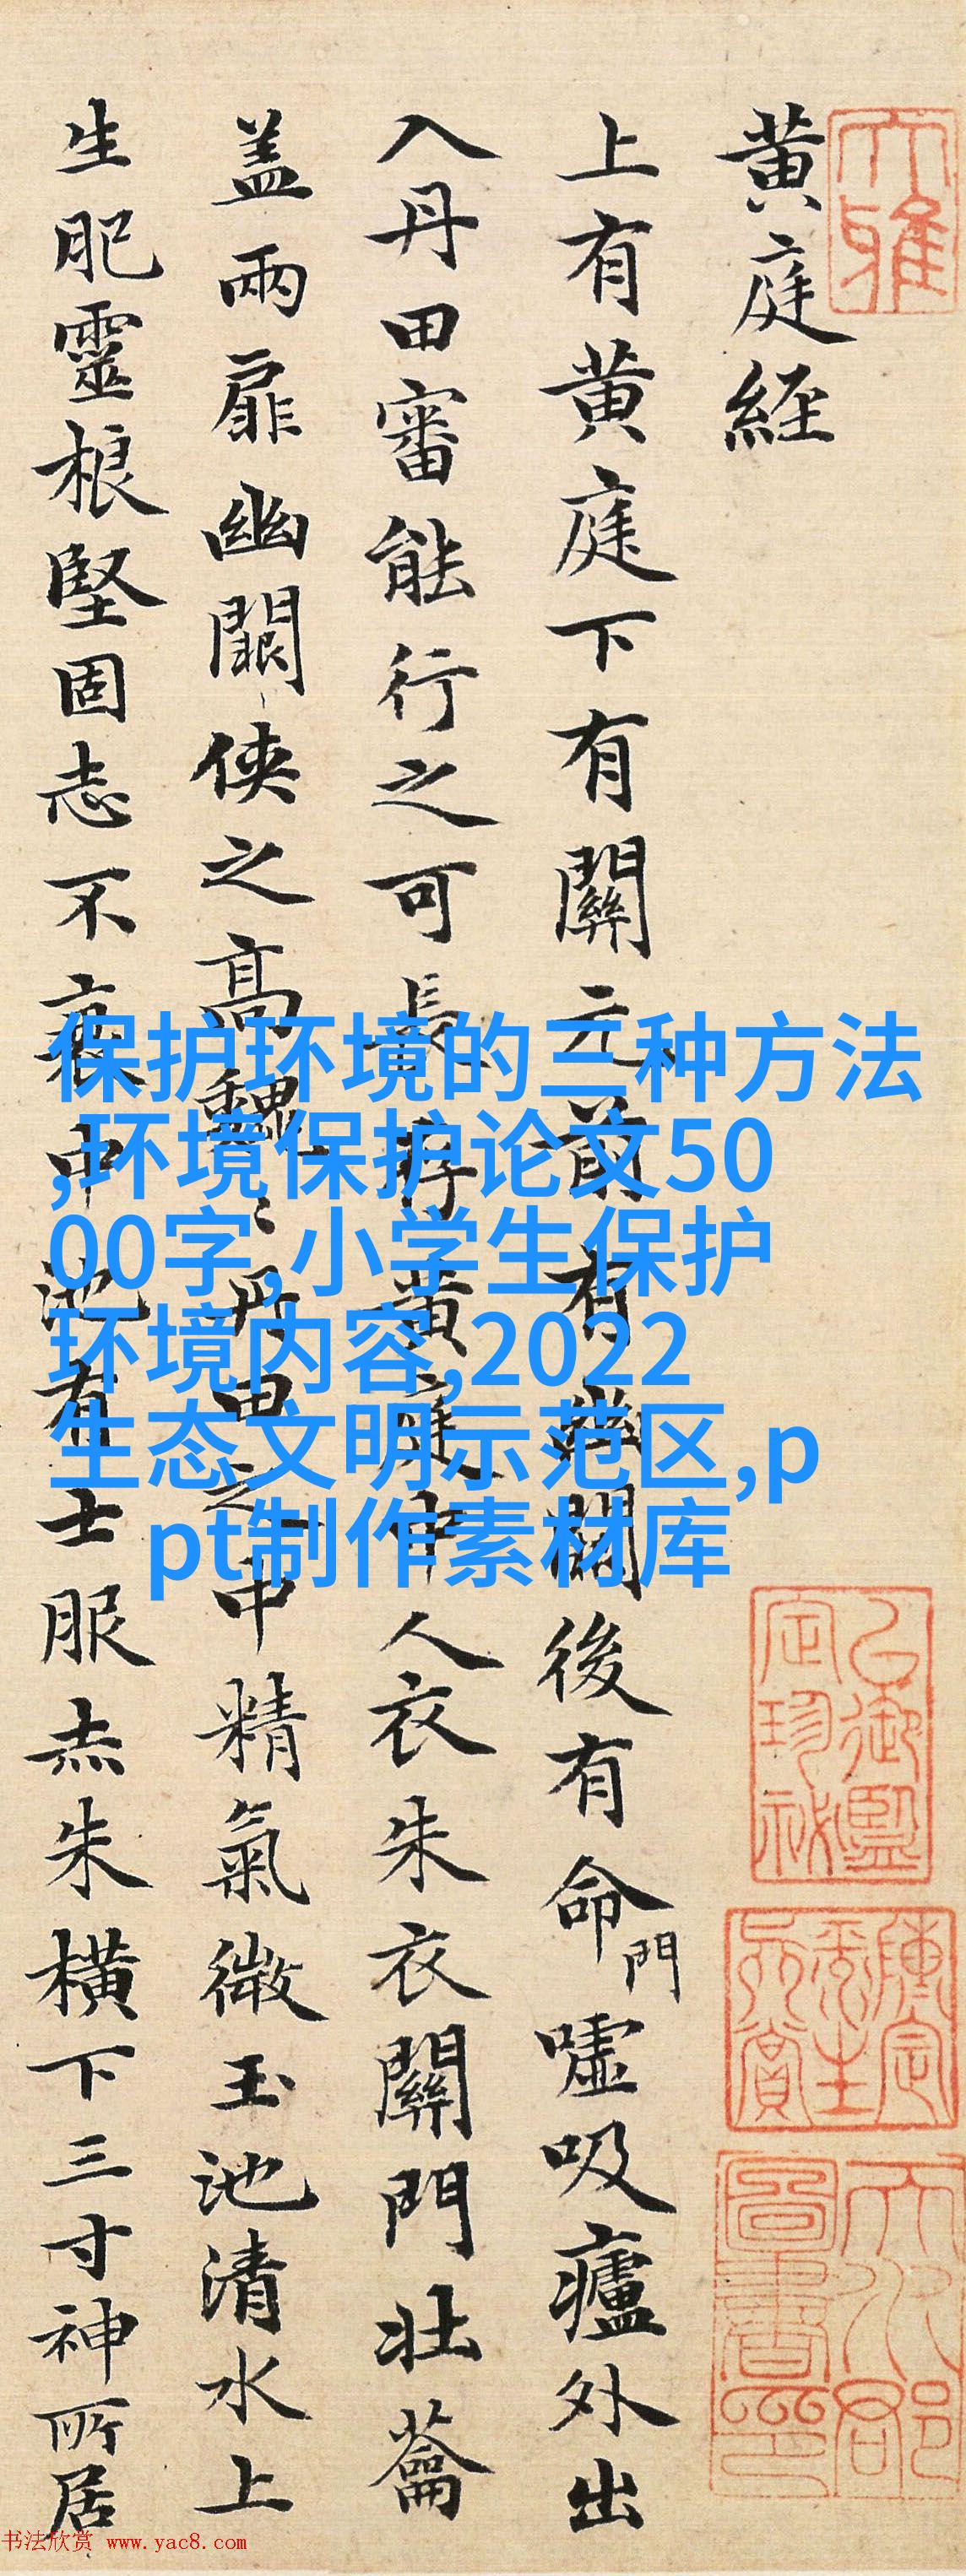 大雅
黄庭経
上有黄庭下有關元前有幽闕後有命門嘘吸廬外出
入丹田審能行之可長存黄庭中人衣朱衣關門壯蘥
盖兩扉幽闕侠之髙魏丹田之中精氣微玉池清水上
生肥靈根堅固志不衰中池有士服赤朱横下三寸神所居
保护环境的三种方法
,环境保护论文50
00字,小学生保护
环境内容,2022
生态文明示范区,p
pt制作素材库
书法欣赏 www.yac8.com